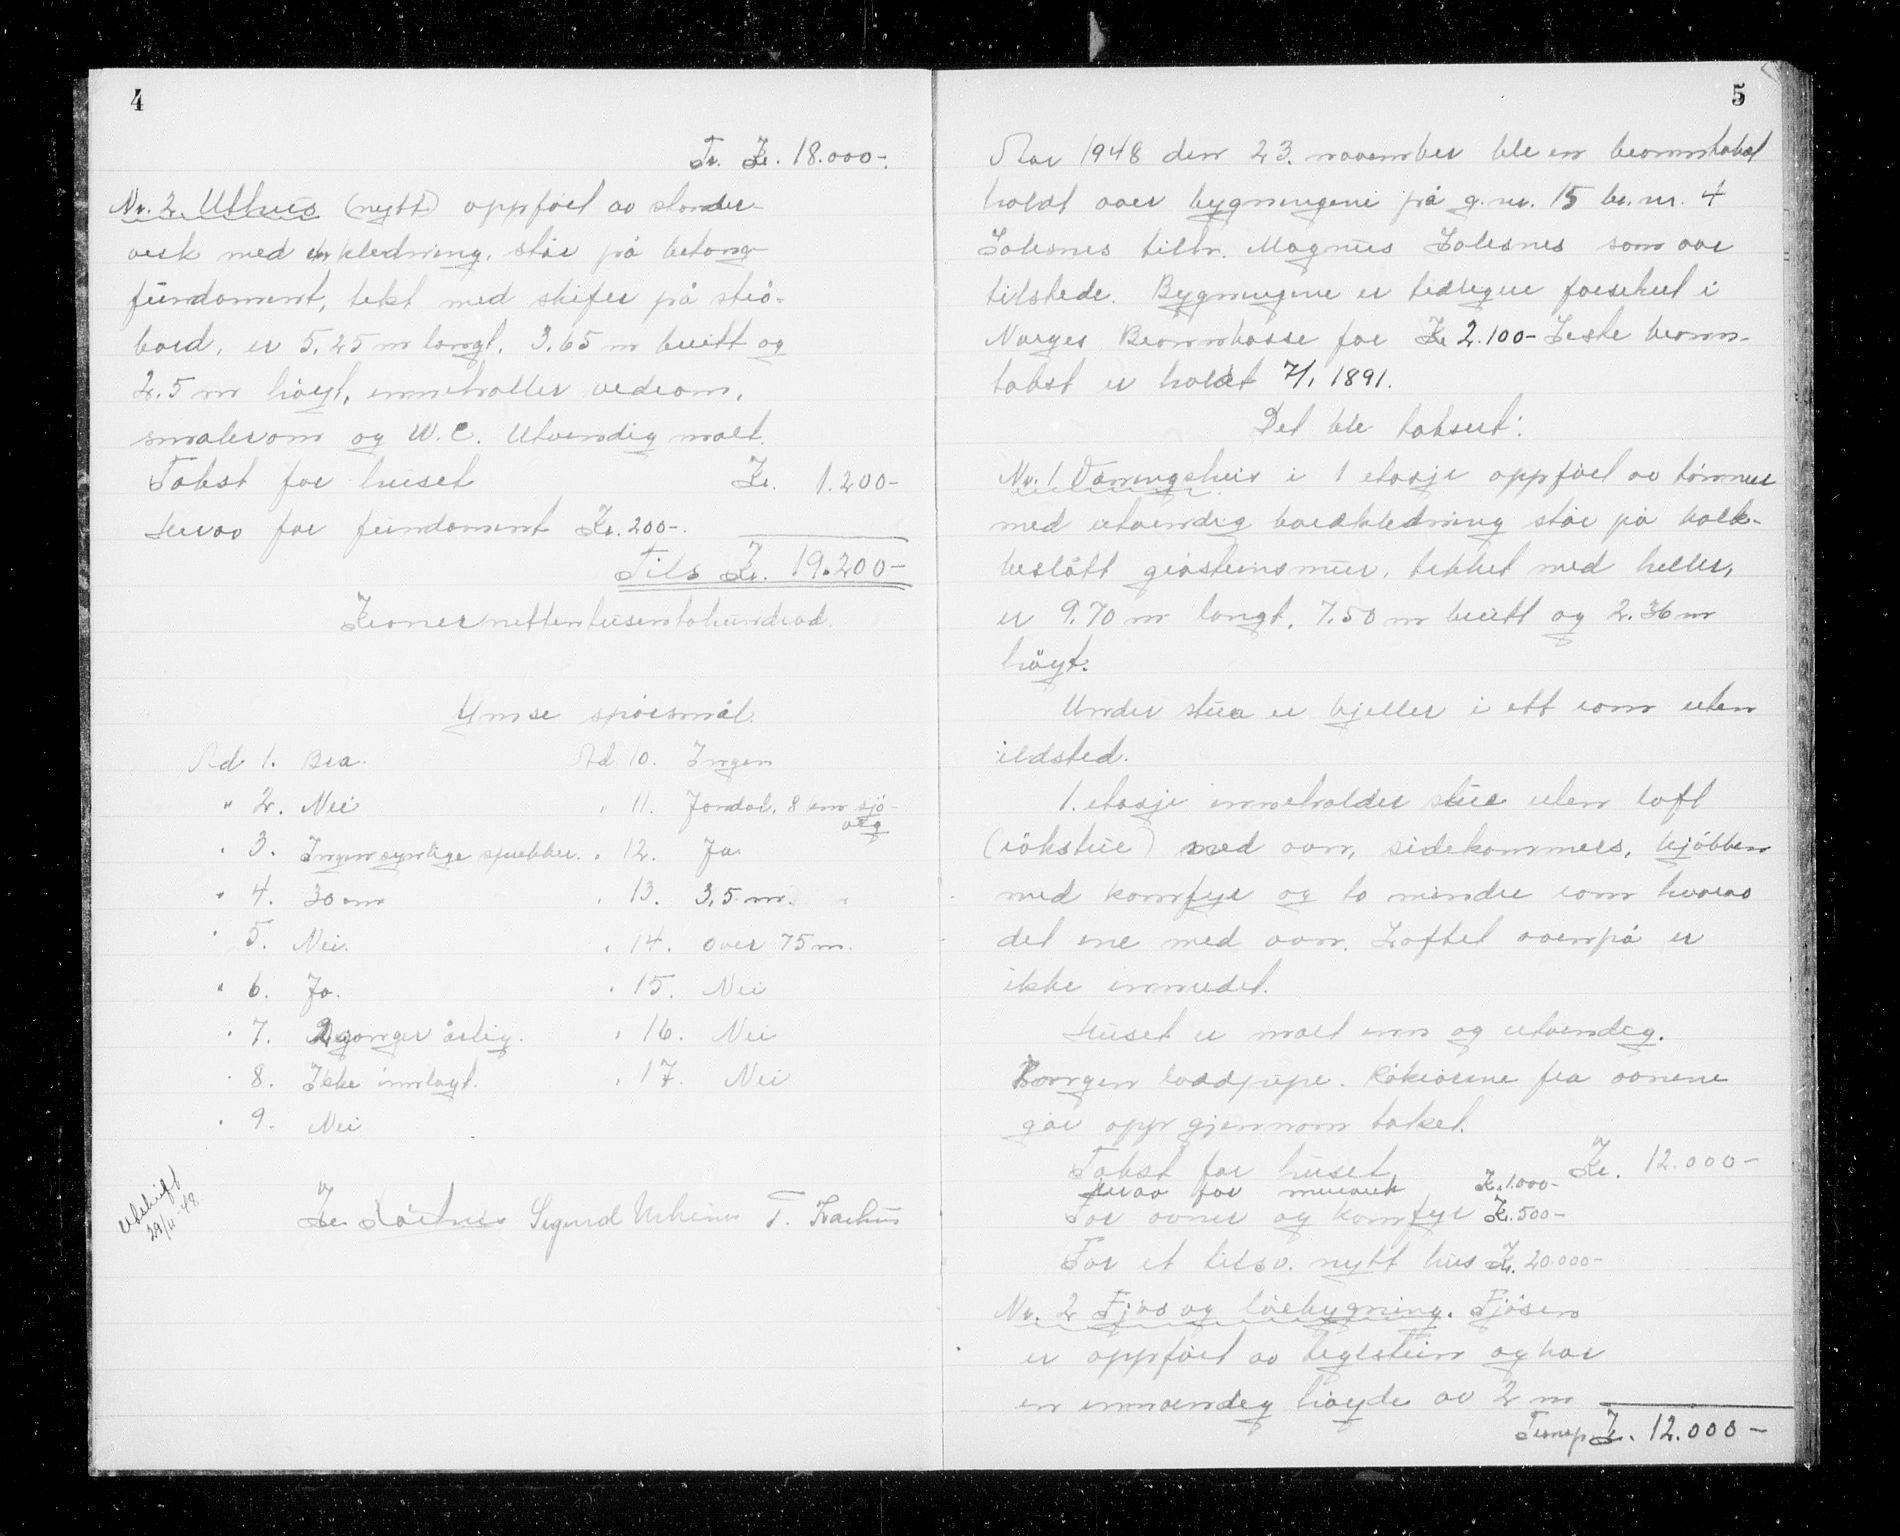 4
Tr. Kr. 18.000-.
Nr. 2 Uthus (nytt) oppført av stender-
verk med innkledning, står på betong-
fundament, tekt med skifer på stra-
bord, er 5,25 m langt, 3,65 m breitt og
2,5 m høgt, inneholder vedrom,
smalerom og W.C. Utvendig malt.
Takst for huset Kr. 1.200-
Herav for fundament Kr. 200-.
Tils Kr. 19.200-
Kroner nittentusentohundrad.
Ymse spørsmål.
Ad 1. Bra.
" 2. Nei
" 3. Ingen synlige sprekker.
" 4. 30 cm
" 5. Nei.
" 6. Ja.
" 7. 2 ganger årlig.
" 8. Ikke innlagt.
" 9. Nei
Ad 10. Ingen
" 11. Jondal, 8 km sjø-
veg
" 12. Ja
" 13. 3,5 m.
" 14. Over 75 m.
" 15. Nei
" 16. Nei
" 17. Nei
Utskrift
29/11-48
Sigurd T.
5
Aar 1948 den 23. november ble en branntakst
holdt over bygningene på g.nr. 15 br.nr. 4
Solesnes tilhr. Magnus Solesnes som var
tilstede. Bygningene er tidligere forsikret i
Norges Brannkasse for Kr 2.100- Siste brann-
takst er holdt 7/1 1891.
Det ble taksert:
Nr. 1 Våningshus i 1 etasje oppført av tømmer
med utvendig bordkledning står på kalk-
beslått gråsteinsmur, tekket med heller,
er 9.70 m langt, 7.50 m breitt og 2.36 m
høgt.
Under stua er kjeller i ett rom uten
ildsted.
1. etasje inneholder stue uten loft
(røkstue) med ovn, sidekammers, kjøkken
med komfyr og to mindre rom hvorav
det ene med ovn. Loftet ovenpå er
ikke innredet.
Huset er malt inn og utvendig.
Ingen loddpipe. Røkrørene fra ovnene
går opp gjennom taket.
Takst for huset Kr. 12.000-
Herav for murverk Kr. 1.000-
For ovner og komfyr Kr. 500-
For et tilsv. nytt hus Kr. 20.000-
Nr. 2 Fjøs og løebygning. Fjøsen
er oppført av teglstein og har
en innvendig høyde av 2 m
Transp. Kr. 12.000-